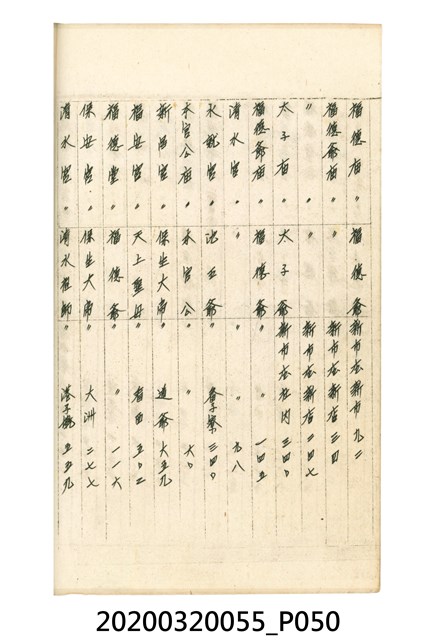 福德廟 〃 福德爺 新市庄新市 九二
福德爺廟 〃 〃 新市庄新店 三四
〃 〃 〃 新市庄新店 二四七
太子廟 〃 太子爺 新市庄社内 三四〇
福德爺廟 〃 福德爺 〃 〃 一四五
清水宮 〃 〃 〃 〃 九八
水 宮 〃 池王爺 〃 三四〇
水官公廟 〃 水官公 〃 〃 六〇
新 宮 〃 保生大帝 〃 道爺 六五九
福安宮 〃 天上聖母 〃 看西 五〇二
福德堂 〃 福德爺 〃 〃 一一六
保安宮 〃 保生大帝 〃 大洲 二七七
清水宮 〃 清水祖師 〃 港子墘 五五九
20200320055_P050